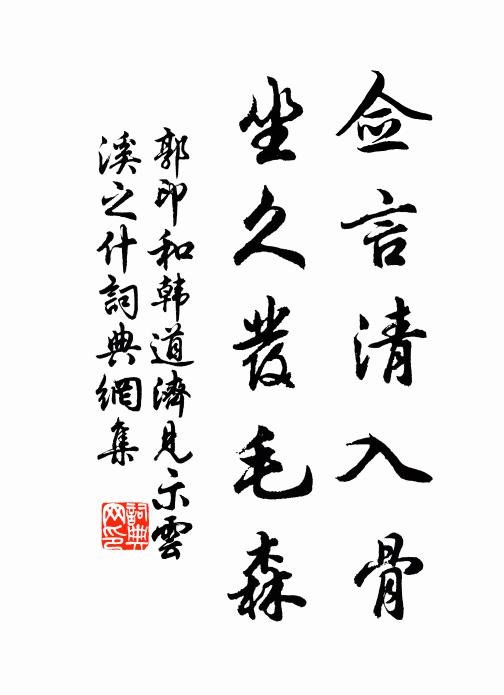 僉言清入骨
坐久發毛森
郭印和韩道濟見示雲
溪之什詞典網集
詞典
网印